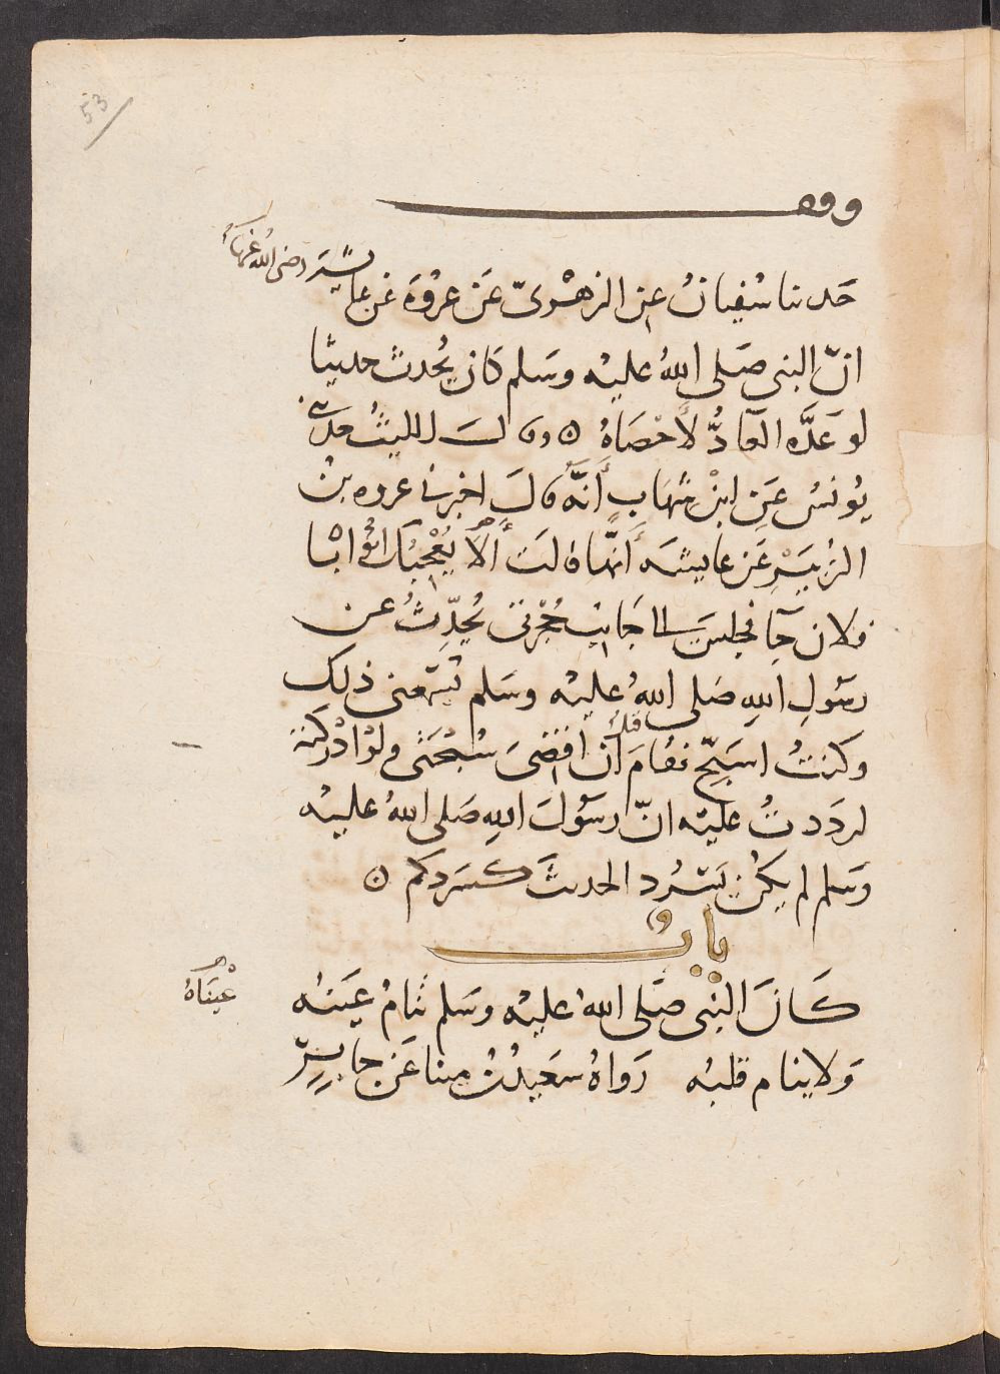 53
وقف
حدثنا سُفيانُ عن الزهْرىّ عَن عروَة عَن عايشَة رضى الله عنها
انّ النبى صَلى اللهُ عليْه وسَلم كان يُحدث حديثا
لو عَدَّه العَادُّ لأحْصَاهُ ٥ وقالَ الليثُ حدثنى
يُونسُ عَنِ ابْنِ شهَابٍ أنّهُ قالَ اخبرنى عروه بنُ
الزُبَيْرِ عَن عايشَه أنّها قالَت ألَا يُعْجِبُكَ ابُو ابْا
فلان جَآ فجلسَ الى جَانِبِ حُجْرتى يُحدِّثُ عن
رسَولِ اللهِ صَلى اللهُ عليْه وسَلم يُسْمعنى ذلك
وكنتُ اسَبّحُ فقامَ قبل أنْ اقضىَ سُبْحَتى ولوْ ادْركته
لردَدتُ عليْه انّ رسَوُلَ اللهِ صَلى اللهُ عليْه
وسَلم لم يكنْ يَسْرُد الحديثَ كسَردكم ٥
بابُ
كَانَ النبى صَلى اللهُ عليْه وسَلم تنامُ عَينُه
عَيْنَاهُ
وَلا ينام قلبُه رَواهُ سَعيدُ بْنُ مينا عَن جابِرٍ